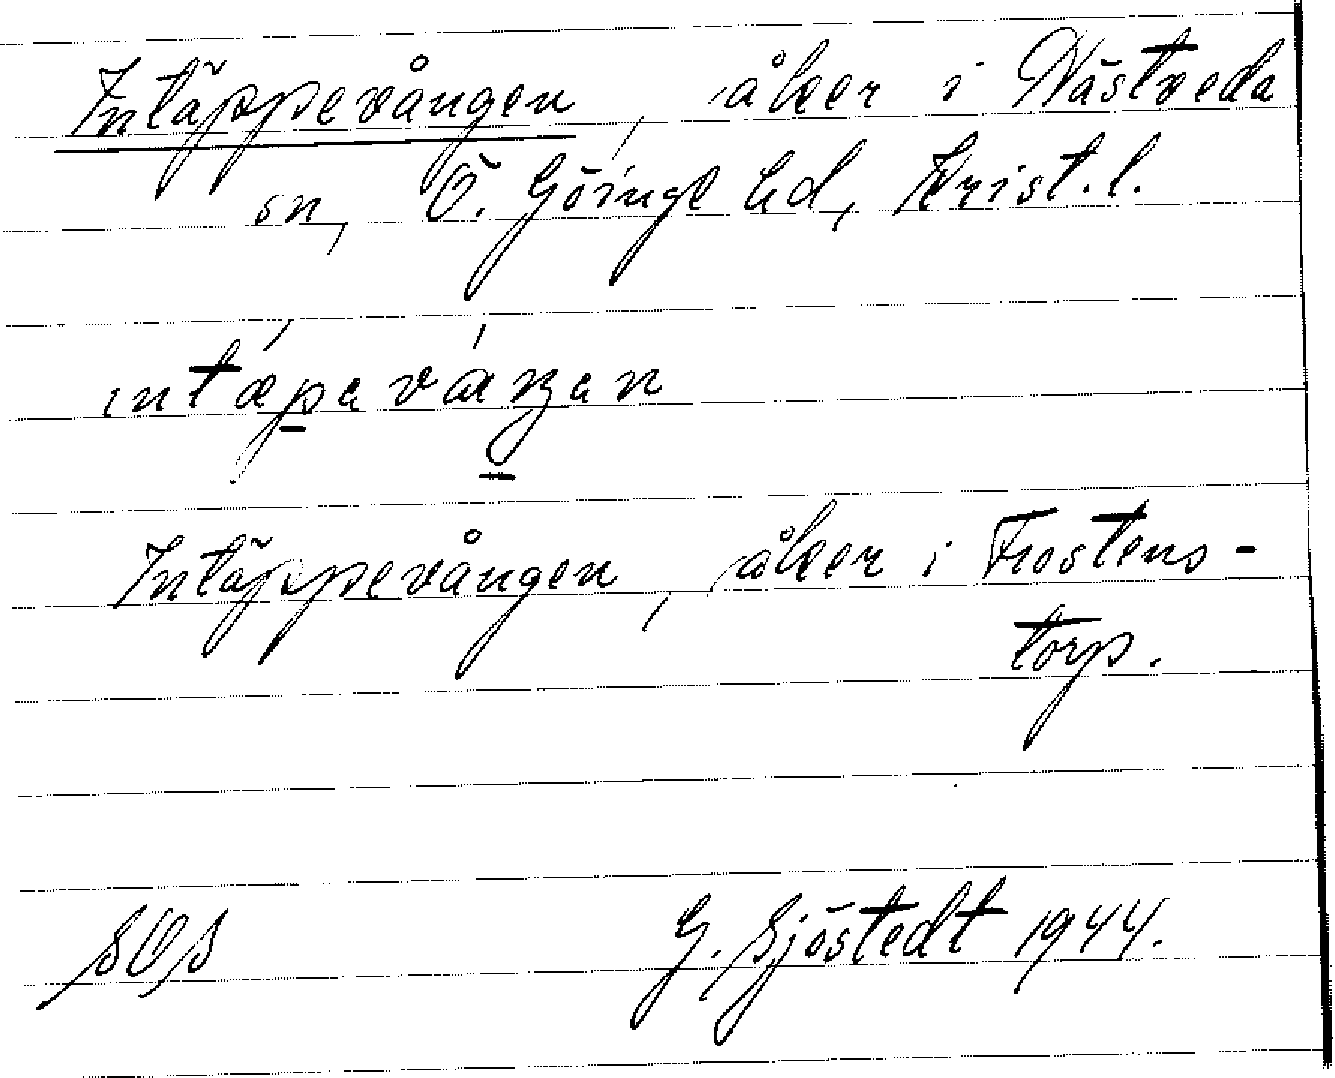 Intäppevången, åker i Nästveda
sn, Ö. Göinge hd, Krist. l.
intæpavaŋan
Intäppevången, åker i Frostens-
torp.
SOS G. Sjöstedt 1944.